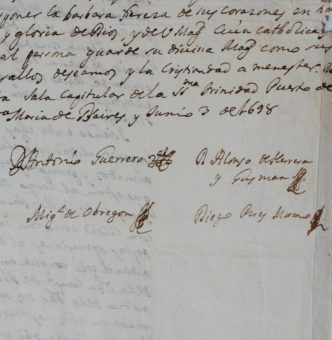 poner la barbara fiereza de sus corazones en
y gloria de Dios, y de V. Magd. Cuia catholica
al persona guarde su divina Magd. como sus
sallos deseamos y la christiandad a menester.
Sala Capitular de la Sma. trinidad Puerto de
Maria de B. aires y Junio 3 de 1698
D. Antonio Guerrero
D. Alonso de Herrera
y Gusman
Migl. de Obregon
Diego